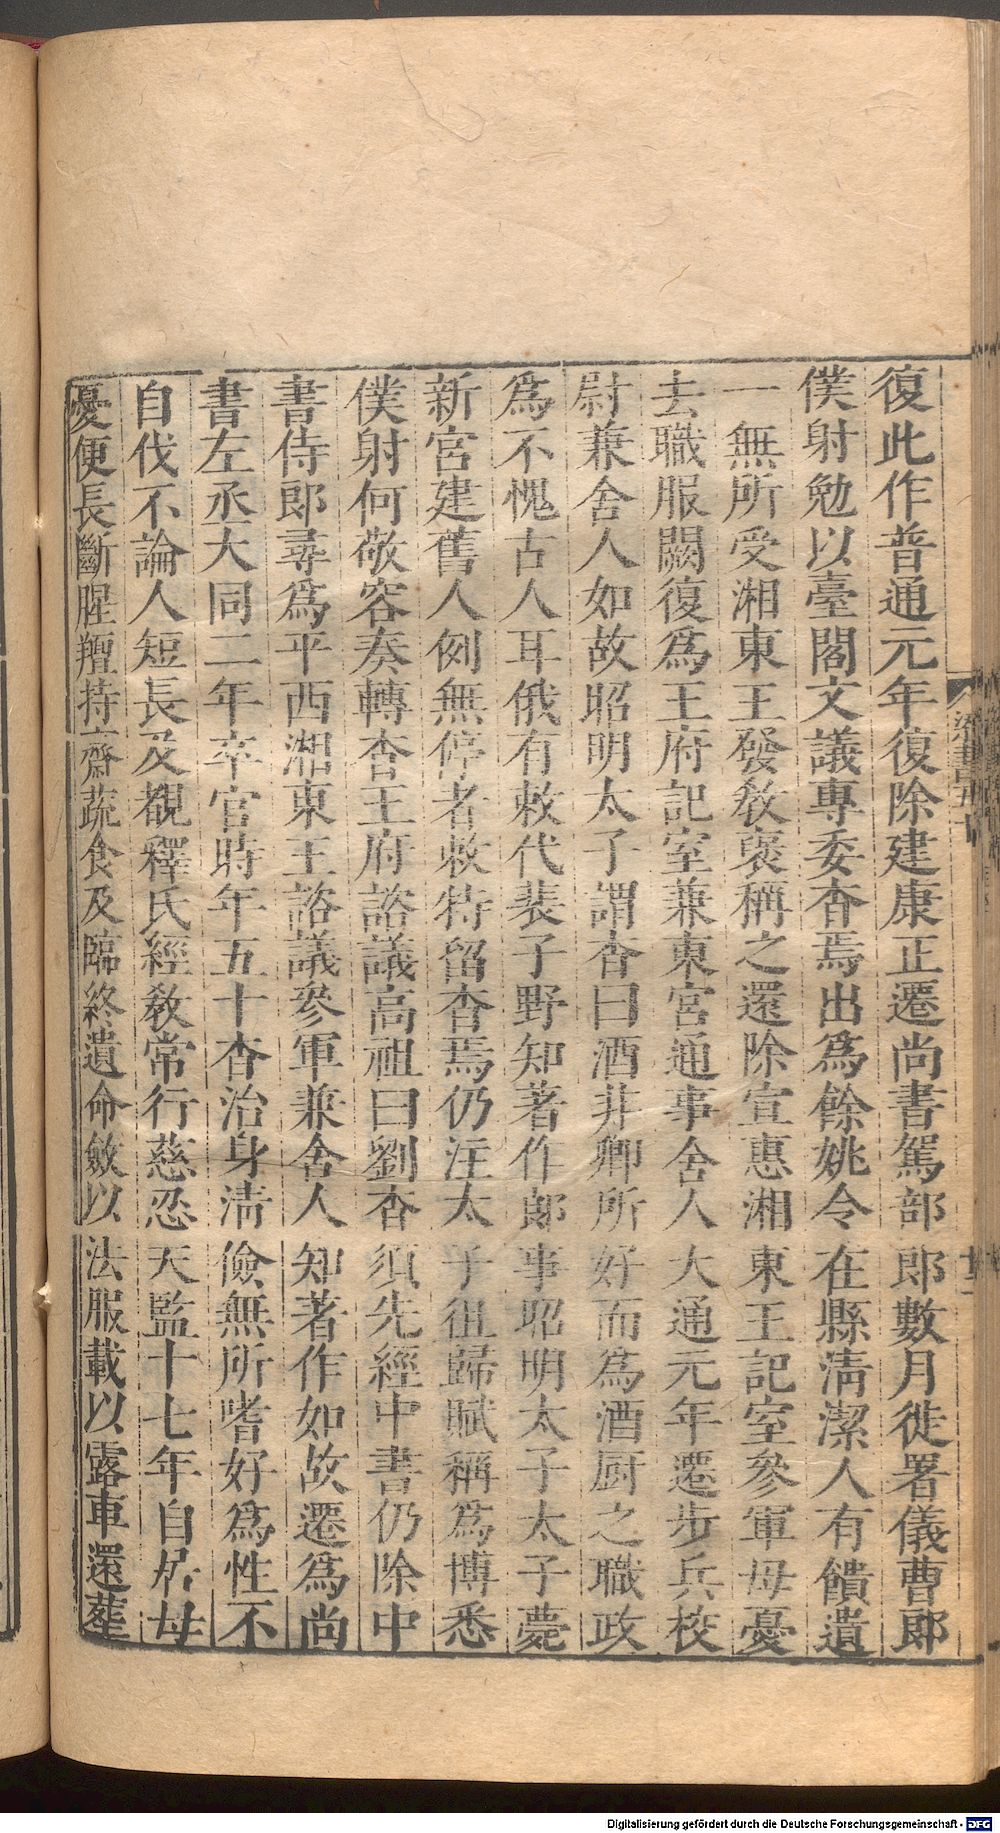 復此作普通元年復除建康正遷尚書駕部郎數月徙署儀曹郎
僕射勉以臺閣文議專委杳焉出爲餘姚令在縣淸潔人有饋遺
一無所受湘東王發敎褒稱之還除宣惠湘東王記室參軍母憂
去職服闋復爲王府記室兼東宮通事舍人大通元年遷步兵校
尉兼舍人如故昭明太子謂杳曰酒非卿所好而爲酒厨之職政
爲不愧古人耳俄有敕代裴子野知著作郎事昭明太子太子薨
新宮建舊人例無停者敕特留杳焉仍注太子徂歸賦稱爲博悉
僕射何敬容奏轉杳王府諮議高祖曰劉杳須先經中書仍除中
書侍郎尋爲平西湘東王諮議參軍兼舍人知著作如故遷爲尚
書左丞大同二年卒官時年五十杳治身淸儉無所嗜好爲性不
自伐不論人短長及覩釋氏經敎常行慈忍天監十七年自居母
憂便長斷腥羶持齋蔬食及臨終遺命斂以法服載以露車還葬
梁書五十
Digitalisierung gefördert durch die Deutsche Forschungsgemeinschaft - DFG